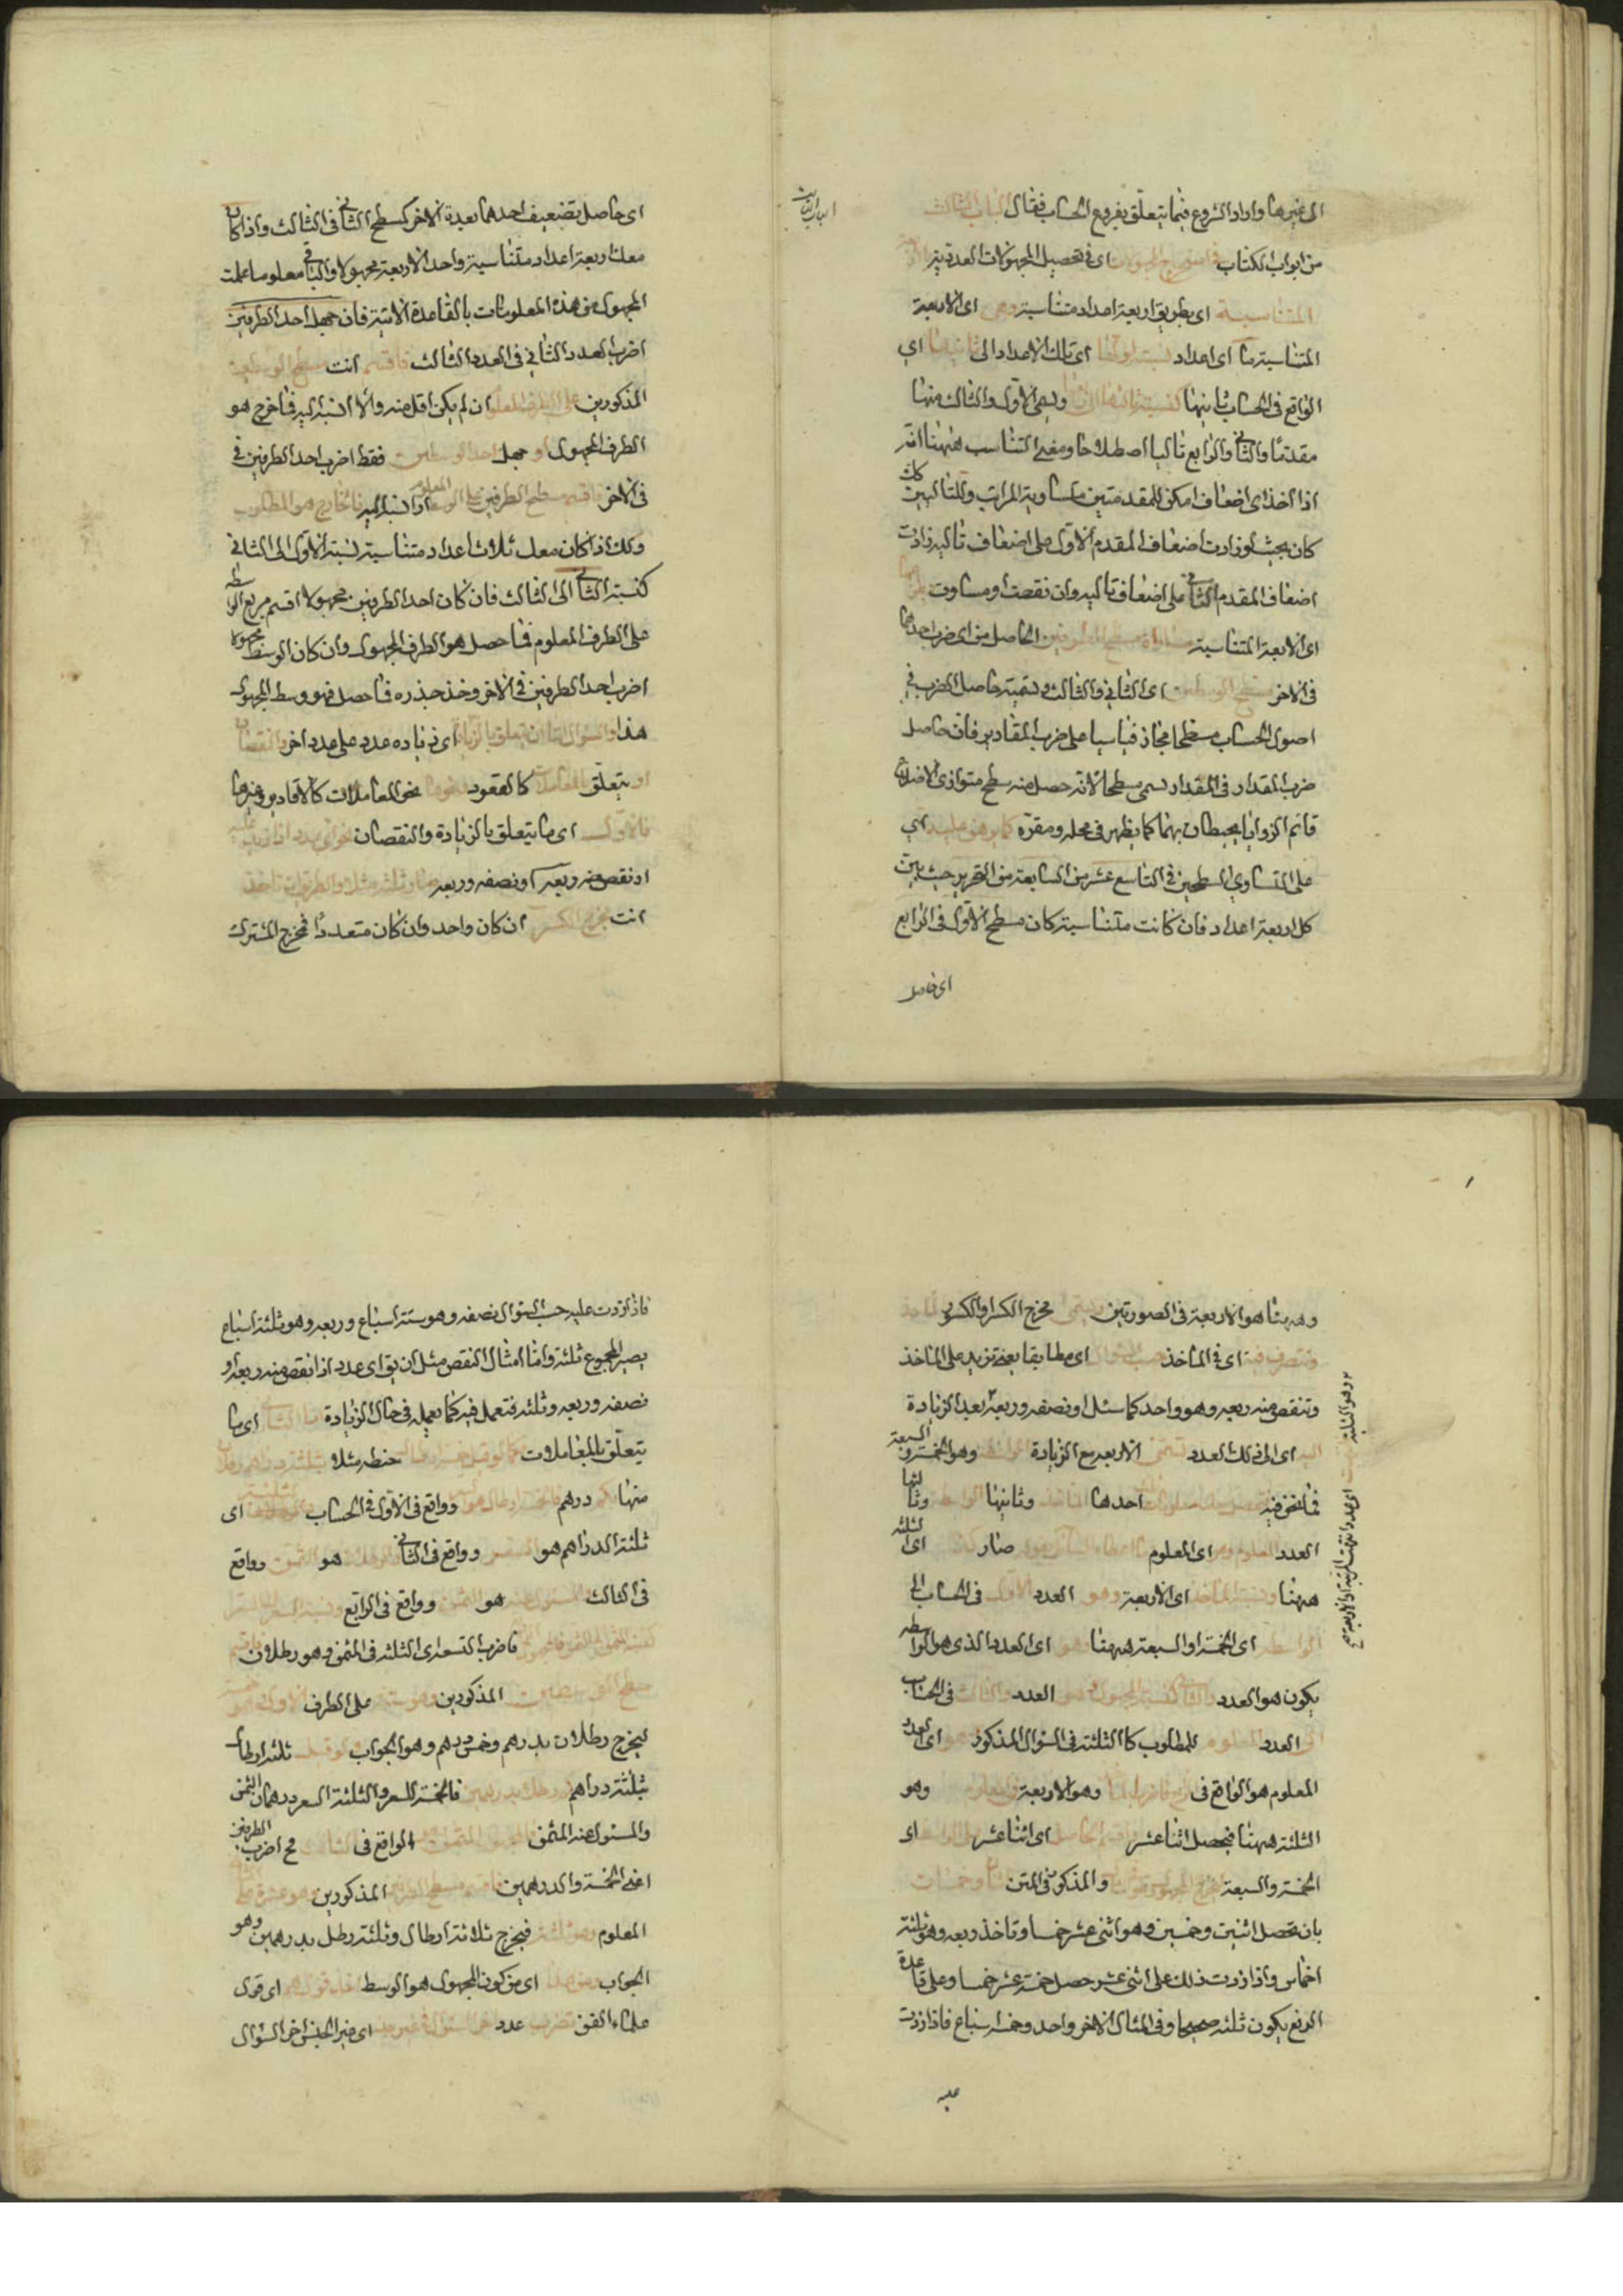 الى غيرها واراد الشروع فيما يتعلق بفروع الحساب فقال الباب الثالث
الباب الثالث
من ابواب الكتاب في استخراج المجهولات اى في تحصيل المجهولات العددية بالاربعة
المتناسبة اى بطريق اربعة اعداد متناسبة وهى اى الاربعة
المتناسبة ما اى اعداد نسبة اولها اى تلك الاعداد الى ثانيها اى
الواقع في الحساب ثانيها كنسبة ثالثها الى رابعها ويسمى الاول والثالث منها
مقدما والثانى والرابع تاليا اصطلاحا ومعنى التناسب ههنا انه
اذا اخذ اى اضعاف امكن للمقدمتين متساوية المراتب وللتاليين كك
كان بحيث لو زادت اضعاف المقدم الاول على اضعاف تاليه زادت
اضعاف المقدم الثانى على اضعاف تاليه وان نقصت او ساوت
اى الاربعة المتناسبة مساواة مسطح الطرفين الحاصل من اى ضرب احدهما
في الاخر مسطح الوسطين اى الثانى والثالث وتسمية حاصل الضرب في
اصول الحساب مسطحا مجاز قياسيا على ضرب المقادير فان حاصل
ضرب المقدار في المقدار يسمى مسطحا لانه حصل منه سطح متوازى الاضلاع
قائم الزوايا يحيطان بهما كما يظهر في محله ومقره كما برهن عليه اى
على التساوى المسطحين في التاسع عشر من السابعة من التحرير حيث بين
كل اربعة اعداد فان كانت متناسبة كان مسطح الاول في الرابع
اى حاصل
اى حاصل تضعيف احدهما بعدة الاخر كسطح الثانى في الثالث واذا كان
معك اربعة اعداد متناسبة واحد الاربعة مجهولا والباقى معلوما علمت
المجهول من هذه المعلومات بالقاعدة الاتية فان جهل احد الطرفين
اضرب العدد الثانى في العدد الثالث فاقسم انت مسطح الوسطين
المذكورين على الطرف المعلوم ان لم يكن اقل منه والا انسبه اليه فما خرج هو
الطرف المجهول او جهل احد الوسطين فقط اضرب احد الطرفين في
في الاخر فاقسم مسطح الطرفين على الوسط المعلوم او انسبه اليه فالخارج هو المطلوب
وكذا اذا كان معك ثلاث اعداد متناسبة نسبة الاول الى الثانى
كنسبة الثانى الى الثالث فان كان احد الطرفين مجهولا اقسم مربع الواسطة
على الطرف المعلوم فما حصل هو الطرف المجهول وان كان الوسط مجهولا
اضرب احد الطرفين في الاخر وخذ جذره فما حصل فهو وسط المجهول
هذا والسؤال اما ان يتعلق بالزيادة اى زيادة عدد على عدد اخر والنقصان
او يتعلق بالمعاملات كالعقود ونحوها نحو المعاملات كالاقادير وغيرها
فالاول اى ما يتعلق بالزيادة والنقصان نحو اى عدد اذا زيد عليه
او نقص منه ربعه او نصفه وربعه صار ثلثة مثلا والطريق ان تاخذ
انت مخرج الكسر ان كان واحد وان كان متعددا فمخرج المشترك
وههنا هو الاربعة في الصورتين ويسمى مخرج الكسر او الكسور الماخذ
وتتصرف فيه اى في الماخذ بحسب السؤال اى مطابقا بمعنى تزيد على الماخذ
وتنقص منه ربعه وهو واحد كما سئل او نصفه وربعه بعد الزيادة
اليه اى الى ذلك العدد تسمى الاربعة مع الزيادة الواسطة وهو الخمسة او السبعة
فيما نحن فيه فحصل معك معلومات ثلث احدها الماخذ وثانيها الواسطة وثالثها
العدد المعلوم وهو اى المعلوم ما اعطاه السائل بقوله صار كذا اى الثلثة
ههنا ونسبة الماخذ اى الاربعة وهو العدد الاول في الحساب الى
الواسطة اى الخمسة او السبعة ههنا وهو اى العدد الذى هو الواسطة
يكون هو العدد الثانى كنسبة المجهول وهو العدد الثالث في الحساب
الى العدد المعلوم للمطلوب كالثلثة في السؤال المذكور وهو اى العدد
المعلوم هو الواقع في الرابع فاضرب الماخذ وهو الاربعة في المعلوم وهو
الثلثة ههنا فيحصل اثنا عشر واقسم الحاصل اى اثنا عشر على الواسطة اى
الخمسة والسبعة ليخرج المجهول وهو في المذكور في المتن اثنان وخمسان
بان تحصل اثنين وخمسين وهو اثنى عشر خمسا وتاخذ ربعه وهو ثلثة
اخماس واذا زدت ذلك على اثنى عشر حصل خمسة عشر خمسا وعلى قاعدة
الرفع يكون ثلثة صحيحا وفي المثال الاخر واحد وخمسة اسباع فاذا زدت
عليه
فاذا زدت عليه حسب السؤال نصفه وهو ستة اسباع وربعه وهو ثلثة اسباع
يصير المجموع ثلثة واما امثال النقص مثل ان يق اى عدد اذا نقص منه ربعه او
نصفه وربعه وثلثه فتعمل فيه كما يعمل في حال الزيادة واما الثانى اى ما
يتعلق بالمعاملات كما لو قيل خمسة ارطال حنطه مثلا بثلثة دراهم رطلان
منها بكم درهم فالخمسة ارطال هو المسعر وواقع في الاول في الحساب والثلثة اى
ثلثة الدراهم هو السعر وواقع في الثانى والرطلان هو المثمن وواقع
في الثالث والمسئول عنه هو الثمن وواقع في الرابع ونسبة المسعر الى السعر
كنسبة المثمن الى الثمن فالمجهول الرابع فاضرب السعر اى الثلثة في المثمن وهو رطلان فاقسم
مسطح الوسطين المذكورين وهو ستة على الطرف الاول وهو خمسة
ليخرج رطلان بدرهم وخمس درهم وهو الجواب ولو قيل ثلثة ارطال
بثلثة دراهم كم رطلا بدرهمين فالخمسة المسعر والثلثة السعر درهمان الثمن
والمسئول عنه المثمن فالمجهول المثمن وهو الواقع في الثالث فح اضرب الطرفين
اعنى الخمسة والدرهمين فاقسم مسطح الطرفين المذكورين وهو عشرة على
المعلوم وهو ثلثة فيخرج ثلاثة ارطال وثلثة رطل بدرهمين وهو
الجواب ومن هنا اى من كون المجهول هو الوسط اخذ قولهم اى قول
علماء الفن تضرب عدد اخر السؤال في غير جنسه اى غير الجنس اخر السؤال